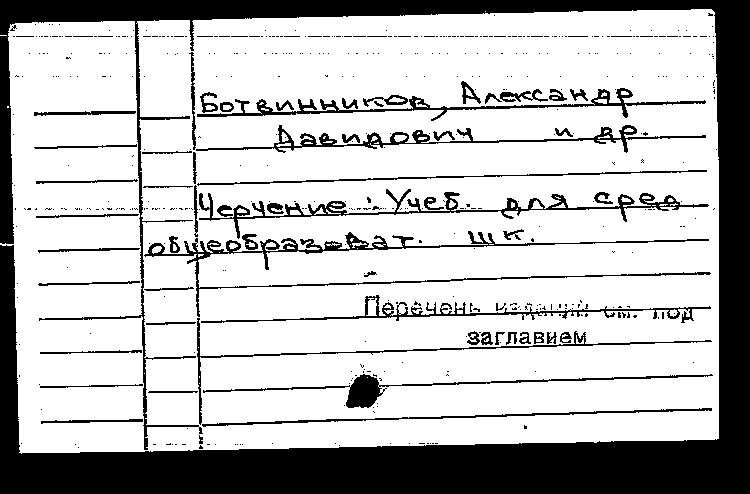 Ботвинников, Александр
Давидович и др.
Черчение : Учеб. для сред
общеобразоват. шк.
Перечень изданий см. под
заглавием